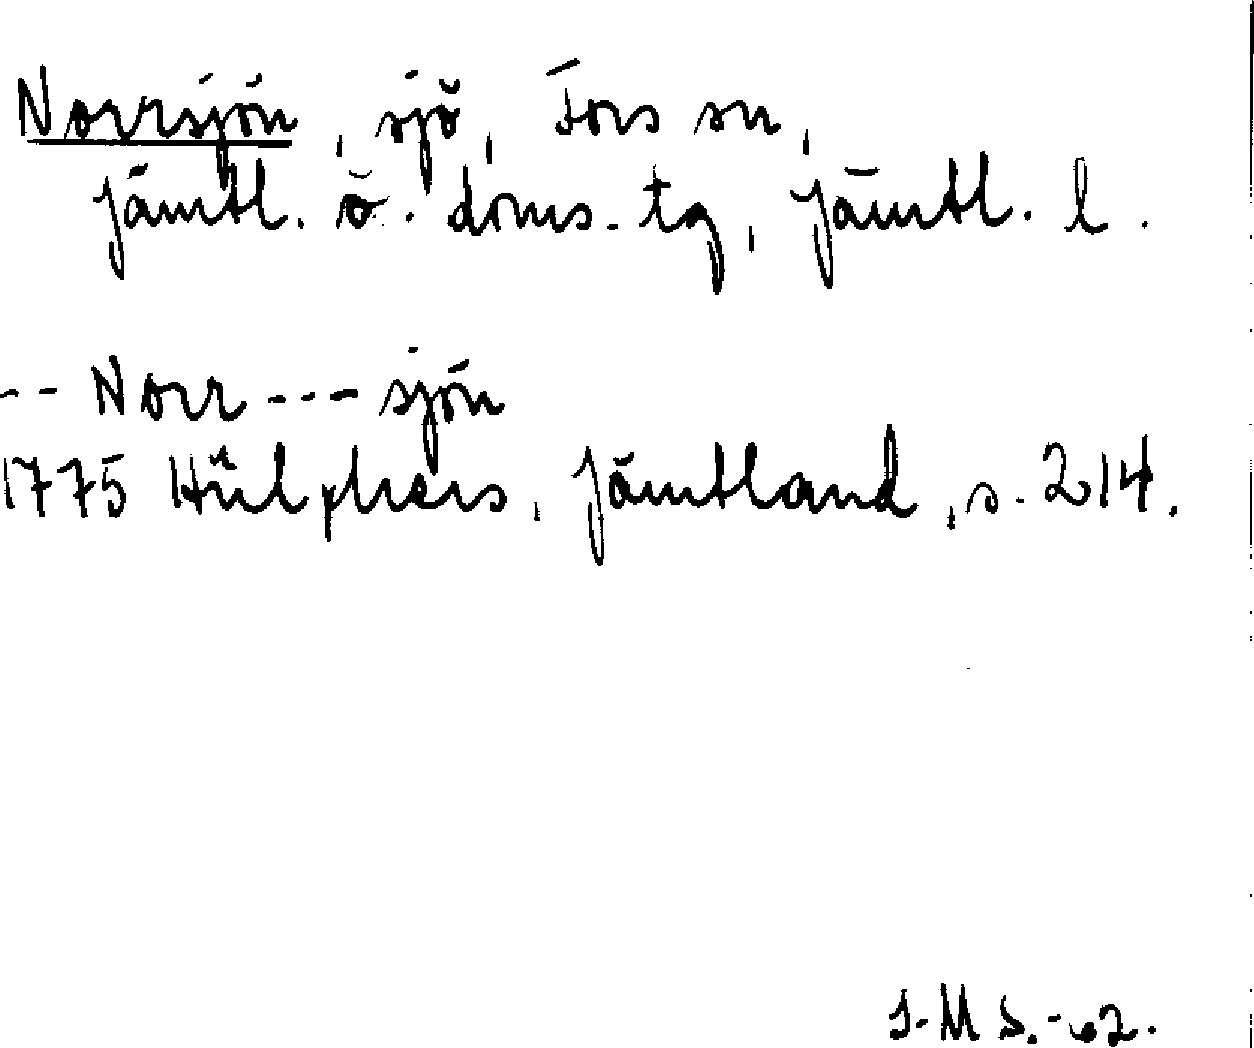 Norrsjön, sjö, Fors sn,
Jämtl. ö. doms. tg, Jämtl. l.
-- Norr --- sjön
1775 Hülphers, Jämtland, s. 214.
I-M S.-62.